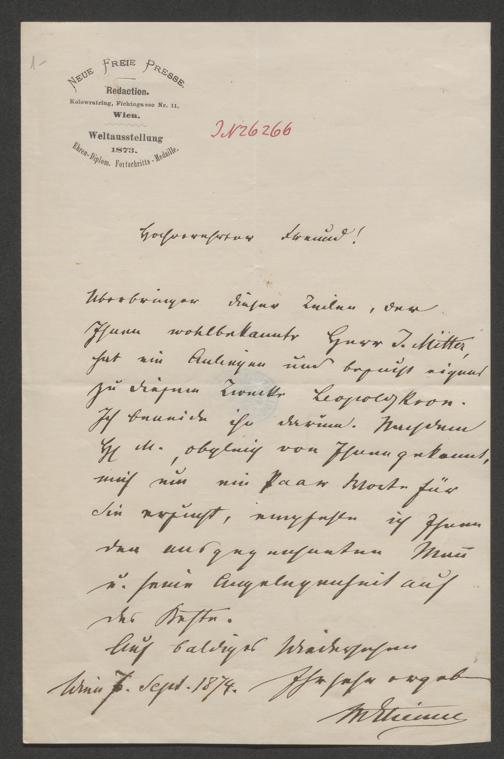 1-
NEUE FREIE PRESSE.
Redaction.
Kolowratring, Fichtegasse Nr. 11,
Wien.
Weltausstellung
1873.
Ehren-Diplom. Fortschritts-Medaille.
IN 26266
Hochverehrter Freund!
Überbringer dieser Zeilen, der
Ihnen wohlbekannte Herr J. Mitter,
hat ein Anliegen und besucht eigens
zu diesem Zwecke Leopoldskron.
Ich beneide ihn darum. Nachdem
H M., obgleich von Ihnen gekannt,
mich um ein Paar Worte für
Sie ersucht, empfehle ich Ihnen
den ausgezeichneten Mann
u. seine Angelegenheit auf
das Beste.
Auf baldiges Wiedersehen
Wien 7. Sept. 1874. Ihr sehr ergeb